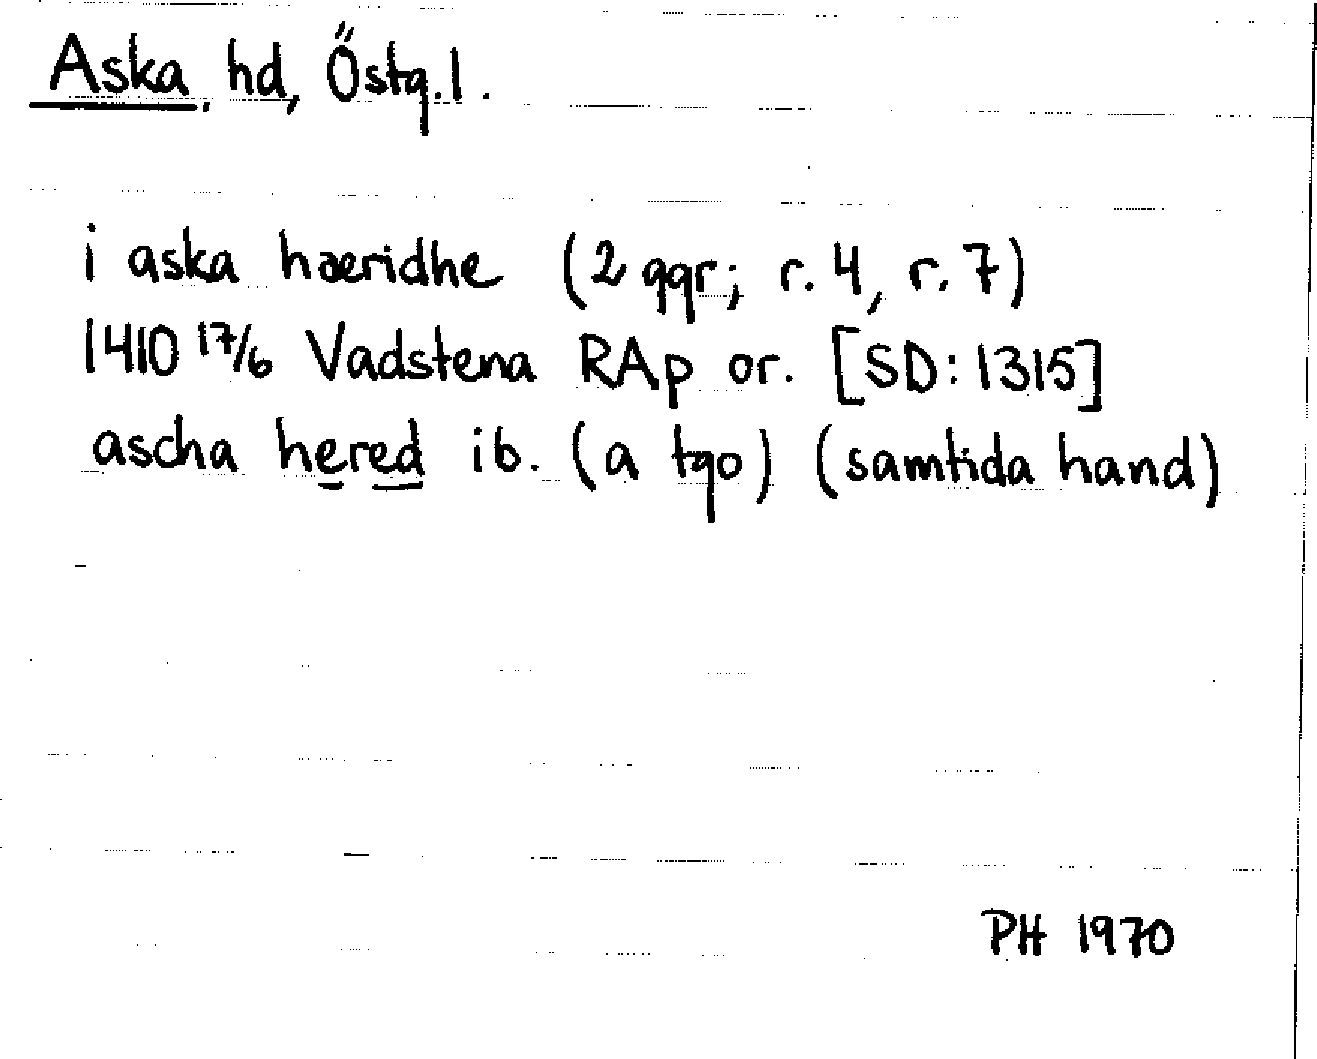 Aska, hd, Östg.l.
i aska hæridhe (2 ggr; r. 4, r. 7)
1410 17/6 Vadstena RAp or. [SD: 1315]
ascha hered ib. (a tgo) (samtida hand)
PH 1970